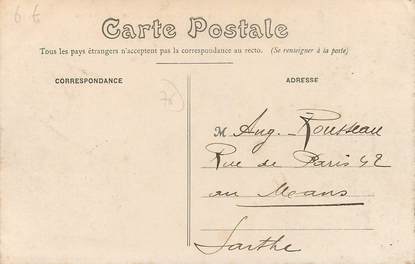 6 t
Carte Postale
Tous les pays étrangers n'acceptent pas la correspondance au recto. (Se renseigner à la poste)
CORRESPONDANCE
ADRESSE
78
M Aug. Rousseau
Rue de Paris 42
au Mans
Sarthe